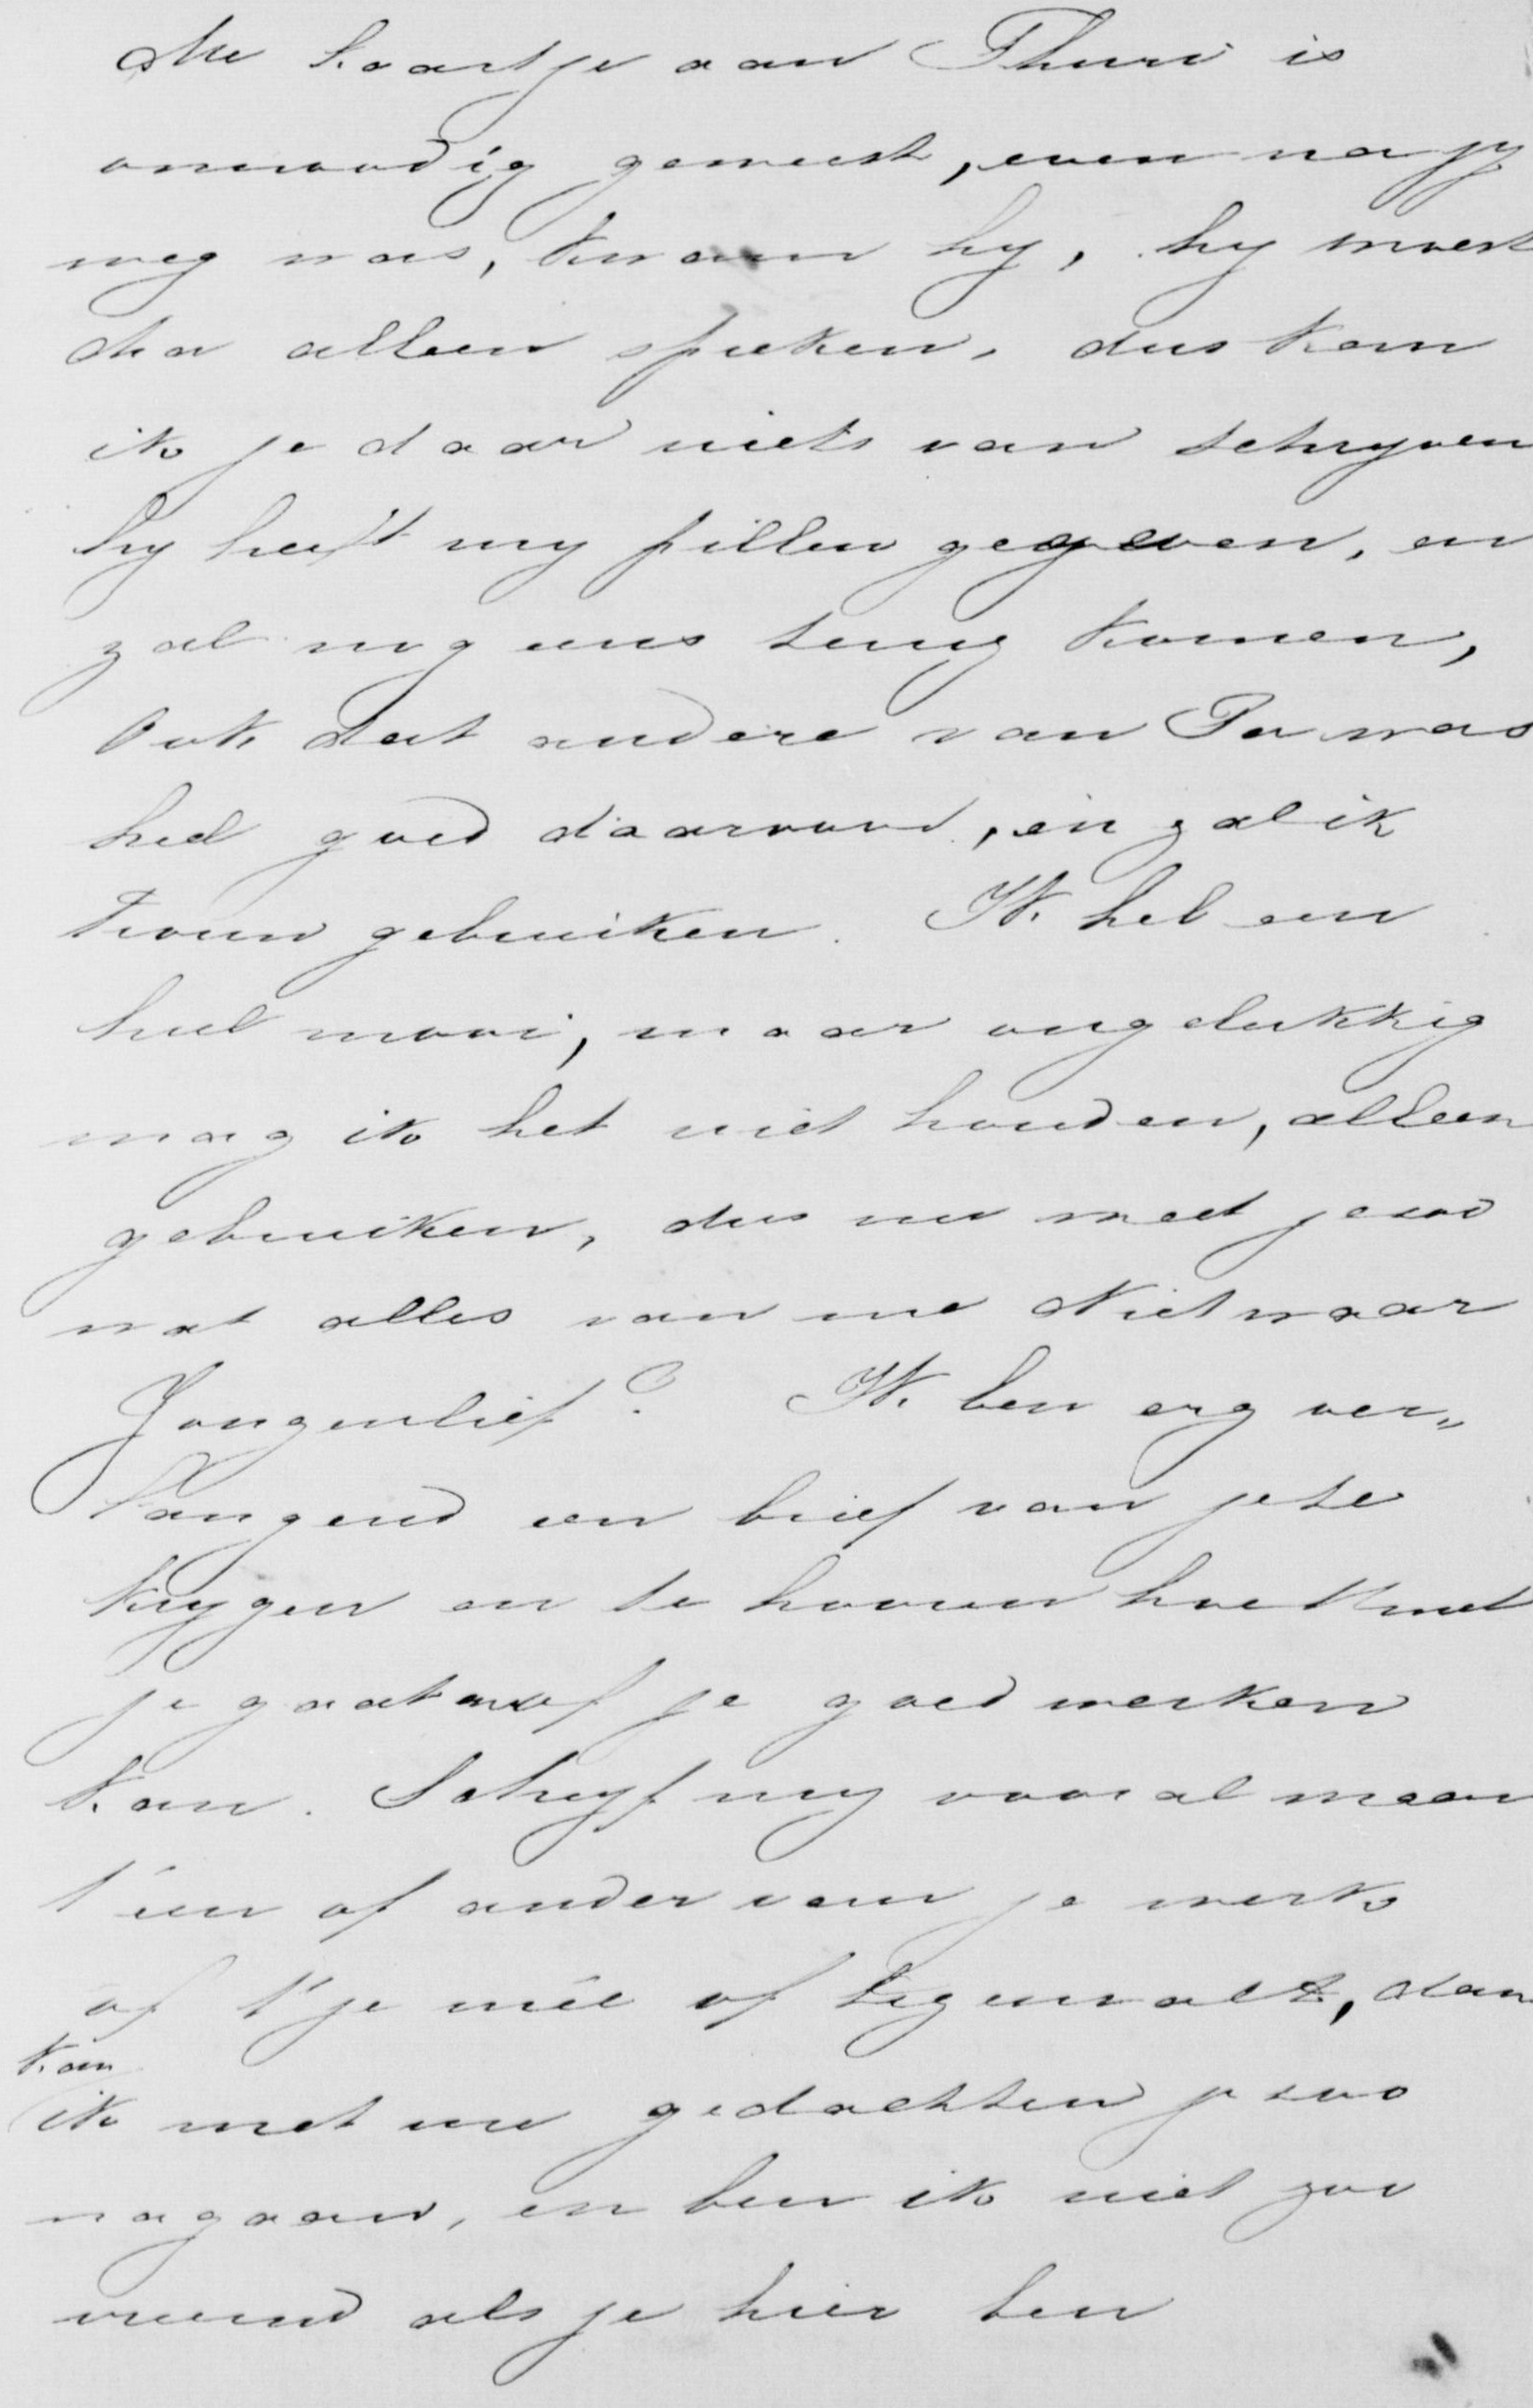 Me kaartje aan Thuri is
onnoodig geweest, even na jy
weg was, kwam hy, hy moest
cha alleen spreken, dus kan
ik je daar niets van schryven
hy heeft my pillen gegeven, en
zal nog eens terug komen,
Ook dat andere van Pa was
heel goed daarvoor, en zal ik
trouw gebruiken. Ik heb een
heel mooi, maar ongelukkig
mag ik het niet houden, alleen
gebruiken, dus nu weet je zoo
wat alles van me Niet waar
Jongenlief? Ik ben erg ver„
langend een brief van je te
krygen en te hooren hoe t met
je gaat en of je goed werken
kan. Schryf my vooral maar
t een of ander van je werk
of t je meê of tegenvalt, dan
kan
ik met me gedachten je zoo
nagaan, en ben ik niet zoo
vreemd als je hier ben